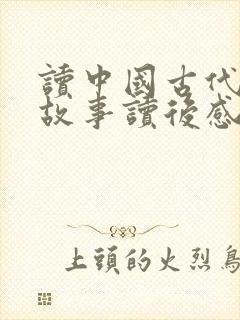 讀中國古代
故事讀後感
上頭的火烈鳥